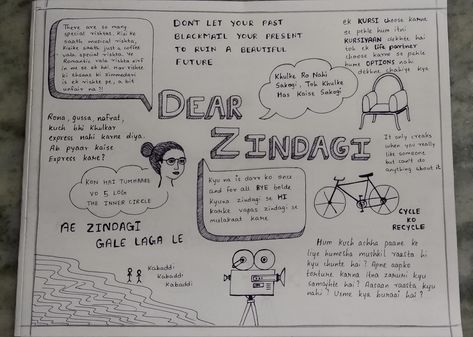 There are so many
special rishtas. Kisi ke
saath musical rishta,
Kisike saath just a coffee
vala special rishta. Ye
Romantic vala rishta sirf
in me se ek hai. Har rishte
ki ehsaas ki zimmedari
is ek rishte pe, a bit
unfair na ?!
DONT LET YOUR PAST
BLACKMAIL YOUR PRESENT
TO RUIN A BEAUTIFUL
FUTURE
ek KURSI choose karne
se pehle hum itni
KURSIYAAN dekhte hai
toh ek life partner
choose karne se pehle
hume OPTIONS nahi
dekhne chahiye kya
Khulke Ro Nahi
Sakogi, Toh Khulke
Has Kaise Sakogi
DEAR
ZINDAGI
Rona, gussa, nafrat,
kuch bhi khulkar
express nahi karne diya.
Ab pyaar kaise
Express kare?
It only creaks
when you really
like someone
but can't do
anything about it
KON HAI TUMHAREE
VO 5 LOG
THE INNER CIRCLE
Kyu na is darr ko once
and for all BYE bolde
Kyuna zindagi se HI
karke vapas zindagi se
mulakaat kare
CYCLE
KO
RECYCLE
AE ZINDAGI
GALE LAGA LE
Kabaddi
Kabaddi
Kabaddi
Hum kuch achha paane ke
liye humesha mushkil raasta hi
kyu chunte hai ? Apne aapko
torture karna itna zaruri kyu
samajhte hai ? Aasaan raasta kyu
nahi ? Usme kya buraai hai ?